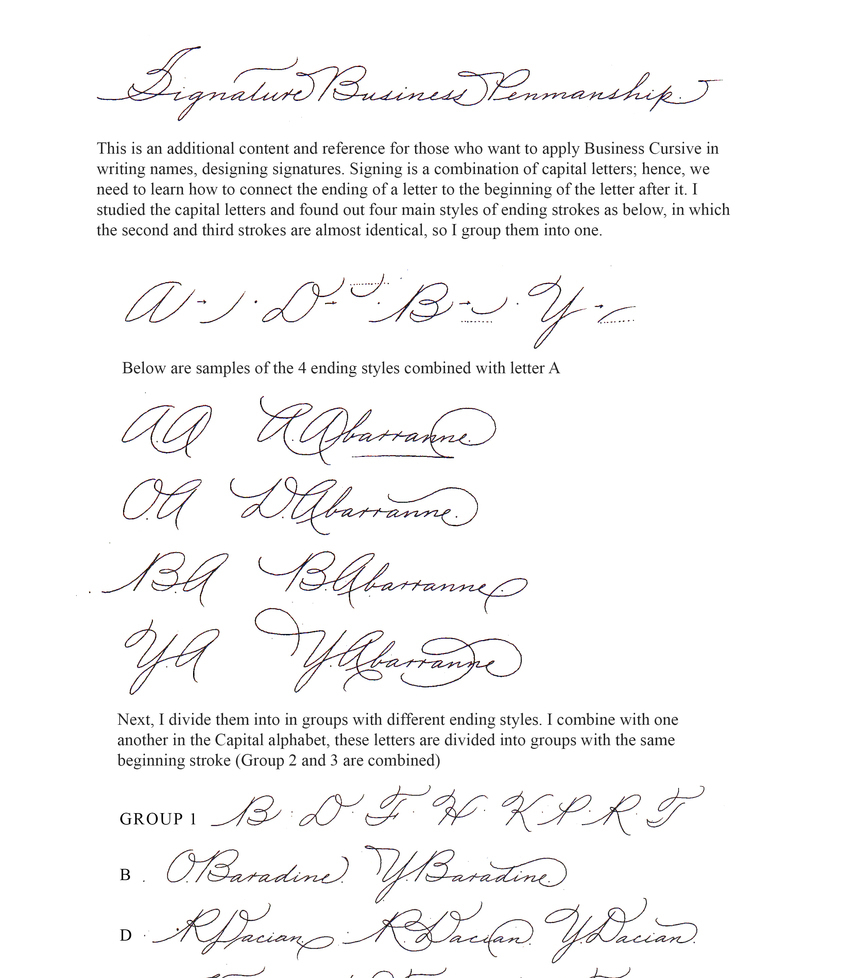 Signature Business Penmanship.
This is an additional content and reference for those who want to apply Business Cursive in
writing names, designing signatures. Signing is a combination of capital letters; hence, we
need to learn how to connect the ending of a letter to the beginning of the letter after it. I
studied the capital letters and found out four main styles of ending strokes as below, in which
the second and third strokes are almost identical, so I group them into one.
A D B Y
Below are samples of the 4 ending styles combined with letter A
A.A A.Abarranne.
O.A D.Abarranne.
B.A B.Abarranne
Y.A Y.Abarranne
Next, I divide them into in groups with different ending styles. I combine with one
another in the Capital alphabet, these letters are divided into groups with the same
beginning stroke (Group 2 and 3 are combined)
GROUP 1 B . D . F . H . K . P . R . T
B . O.Baradine. Y.Baradine.
D . R.Dacian R.Dacian. Y.Dacian.